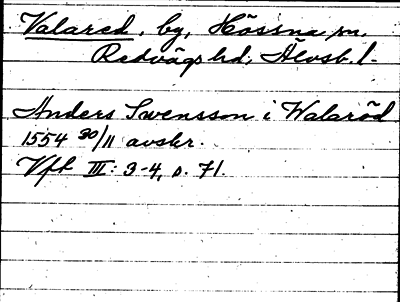 Valared, by, Hössna sn.
Redvägs hd. Älvsb. l.
Anders Swensson i Walaröd
1554 30/11 avskr.
Vft III: 3-4, s. 71.